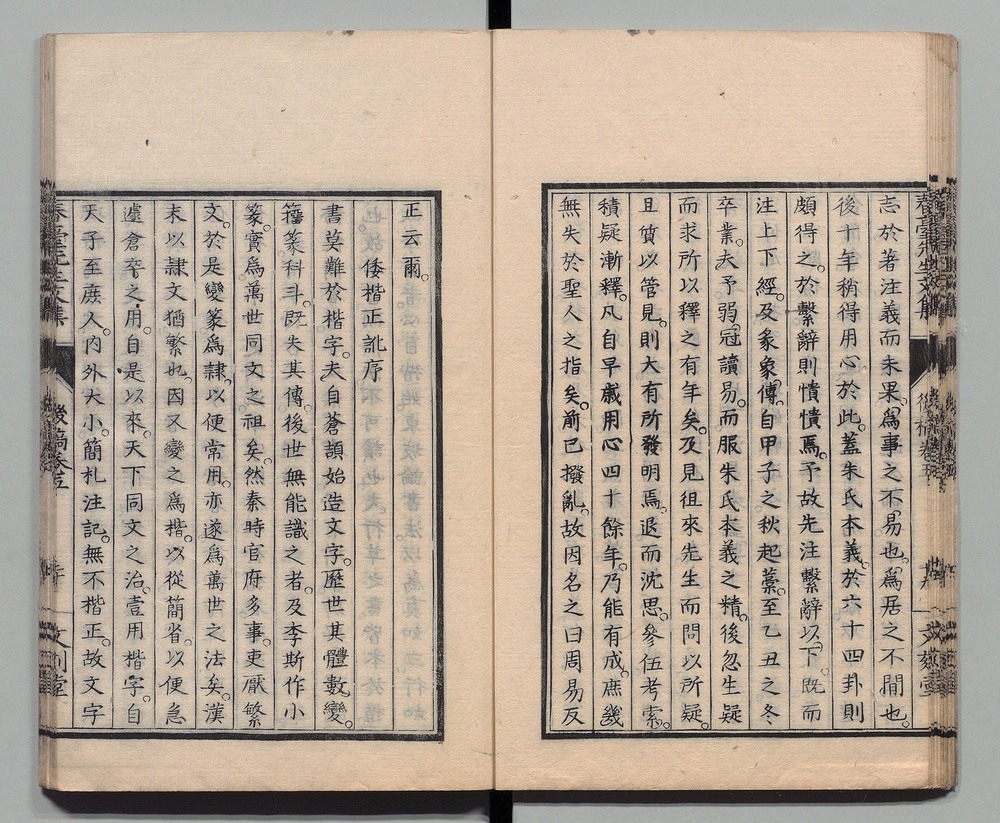 志於著注義而未果。爲事之不易也。爲居之不閒也。
後十年稍得用心於此。蓋朱氏本義。於六十四卦則
頗得之。於繫辭則憒憒焉。予故先注繫辭以下。既而
注上下經。及彖象傳。自甲子之秋起藁。至乙丑之冬
卒業。夫予弱冠讀易。而服朱氏本義之精。後忽生疑
而求所以釋之有年矣。及見徂來先生而問以所疑。
且質以管見。則大有所發明焉。退而沈思。參伍考索。
積疑漸釋。凡自早歲用心四十餘年。乃能有成。庶幾
無失於聖人之指矣。前已撥亂。故因名之曰周易反
正云爾。
倭楷正訛序
書莫難於楷字。夫自蒼頡始造文字。歷世其體數變。
籒篆科斗。既失其傳。後世無能識之者。及李斯作小
篆。實爲萬世同文之祖矣。然秦時官府多事。吏厭繁
文。於是變篆爲隷。以便常用。亦遂爲萬世之法矣。漢
末以隷文猶繁也。因又變之爲楷。以從簡省。以便急
遽倉卒之用。自是以來。天下同文之治。壹用楷字。自
天子至庶人。内外大小。簡札注記。無不楷正。故文字
春臺先生文集
後稿卷五